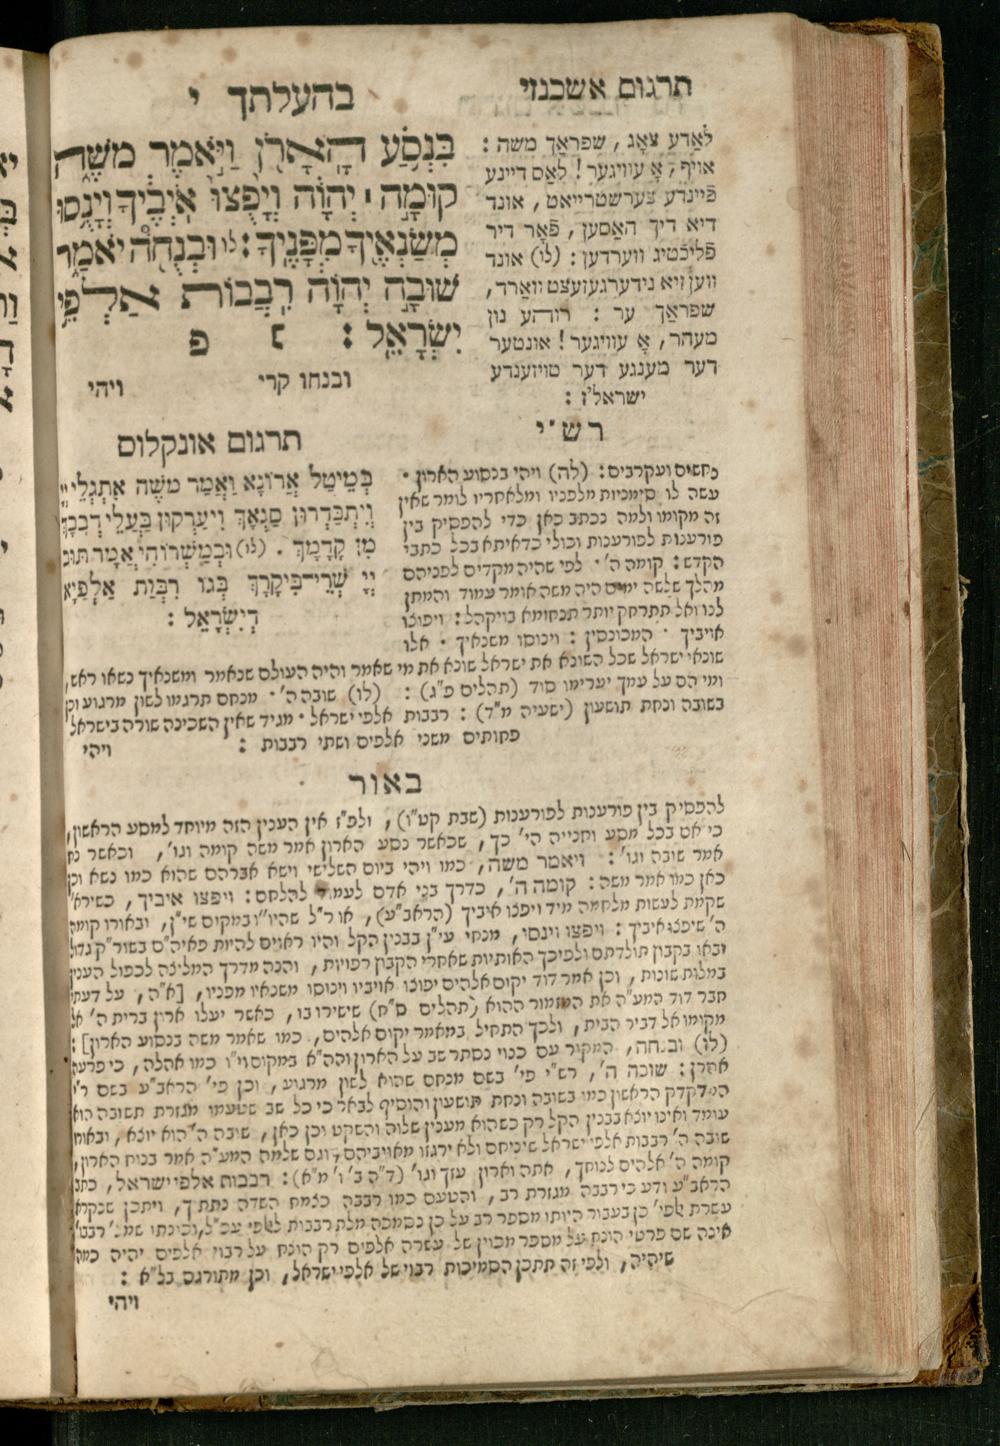 בהעלתך י
תרגום אשכנזי
בִּנְסֹעַ הָאָרֹן וַיֹּאמֶר מֹשֶׁה
קוּמָה ׀ יְהוָה וְיָפֻצוּ אֹיְבֶיךָ וְיָנֻסוּ
מְשַׂנְאֶיךָ מִפָּנֶיךָ : לו וּבְנֻחֹה יֹאמַר
שׁוּבָה יְהוָה רִבְבוֹת אַלְפֵי
יִשְׂרָאֵל : ׆ פ
ובנחו קרי ויהי
לאַדע צאָג, שפראַך משה :
אויף, אָ עוויגער! לאַס דיינע
פֿיינדע צערשטרייאט, אונד
דיא דיך האַסען, פֿאָר דיר
פליכטיג ווערדען : (לו) אונד
ווען זיא נידערגעזעצט וואַרד,
שפראַך ער : רוהע נון
מעהר, אָ עוויגער! אונטער
דער מענגע דער טויזענדע
ישראל'ז :
תרגום אונקלוס
בְּמִיטַל אֲרוֹנָא וַאֲמַר משֶׁה אִתְגְּלֵי יְיָ
וְיִתְבַּדְּרוּן סַנְאָךְ וְיֵעַרְקוּן בַּעֲלֵי דְבָבָךְ
מִן קֳדָמָךְ . (לו) וּבְמִשְׁרוֹהִי אֲמַר תּוּב
יְיָ שְׁרֵי בִּיקָרָךְ בְּגוֹ רִבְּוַת אַלְפַיָּא
דְיִשְׂרָאֵל :
רש"י
נחשים ועקרבים : (לה) ויהי בנסוע הארון ·
עשה לו סימניות מלפניו ומלאחריו לומר שאין
זה מקומו ולמה נכתב כאן כדי להפסיק בין
פורענות לפורענות וכולי כדאיתא בכל כתבי
הקדש : קומה ה' · לפי שהיה מקדים לפניהם
מהלך שלשה ימים היה משה אומר עמוד והמתן
לנו ואל תתרחק יותר תנחומא בויקהל : ויפוצו
אויביך · המכונסין : וינוסו משנאיך · אלו
שונאי ישראל שכל השונא את ישראל שונא את מי שאמר והיה העולם שנאמר ומשנאיך נשאו ראש,
ומי הם על עמך יערימו סוד (תהלים פ"ג) : (לו) שובה ה' · מנחם תרגמו לשון מרגוע וכן
בשובה ונחת תושעון (ישעיה מ"ד) : רבבות אלפי ישראל · מגיד שאין השכינה שורה בישראל
פחותים משני אלפים ושתי רבבות : ויהי
באור
להפסיק בין פורענות לפורענות (שבת קט"ו), ולפ"ז אין הענין הזה מיוחד למסע הראשון,
כי אם בכל מסע וחנייה הי' כך, שכאשר נסע הארון אמר משה קומה וגו', וכאשר נח
אמר שובה וגו' : ויאמר משה, כמו ויהי ביום השלישי וישא אברהם שהוא כמו נשא וכן
כאן כמו אמר משה : קומה ה', כדרך בני אדם לעמוד להלחם : ויפצו איביך, כשירא'
שקמת לעשות מלחמה מיד ויפצו איביך (הראב"ע), או ר"ל שהיו"ו במקום שי"ן, ובאורו קומה
ה' שיפצו איביך : ויפצו וינסו, מנחי עי"ן בבנין הקל והיו ראוים להיות פאיה"ס בשור"ק גדול
ובאו בקבוץ תולדתם ולפיכך האותיות שאחרי הקבוץ רפויות, והנה מדרך המליצה לכפול הענין
במלות שונות, וכן אמר דוד יקום אלהים יפוצו אויביו וינוסו משנאיו מפניו, [א"ה, על דעתי
חבר דוד המע"ה את המזמור ההוא (תהלים ס"ח) שישירו בו, כאשר יעלו ארון ברית ה' אל
מקומו אל דביר הבית, ולכך התחיל במאמר יקום אלהים, כמו שאמר משה בנסוע הארון] :
(לו) ובנחה, המקור עם כנוי נסתר שב על הארון והה"א במקום וי"ו כמו אהלה, כי פרעה
אהרן : שובה ה', רש"י פי' בשם מנחם שהוא לשון מרגוע, וכן פי' הראב"ע בשם ר"י
המדקדק הראשון כמו בשובה ונחת תושעון והוסיף לבאר כי כל שב שטעמו מגזרת תשובה הוא
עומד ואינו יוצא בבנין הקל רק כשהוא מענין שלוה והשקט וכן כאן, שובה ה' הוא יוצא, ובאורו
שובה ה' רבבות אלפי ישראל שיניחם ולא ירגזו מאויביהם, וגם שלמה המע"ה אמר בנוח הארון,
קומה ה' אלהים לנוחך, אתה וארון עזך וגו' (ד"ה ב' ו' מ"א) : רבבות אלפי ישראל, כתב
הראב"ע ודע כי רבבה מגזרת רב, והטעם כמו רבבה כצמח השדה נתתיך, ויתכן שנקרא
עשרת אלפי' כן בעבור היותו מספר רב על כן נסמכה מלת רבבות לאלפי עכ"ל, וכונתו שמ' רבבו'
אינה שם פרטי הונח על מספר מכוין של עשרה אלפים רק הונח על רבוי אלפים יהיה כמה
שיהיה, ולפי זה תתכן הסמיכות רבוי של אלפי ישראל, וכן מתורגם בל"א :
ויהי